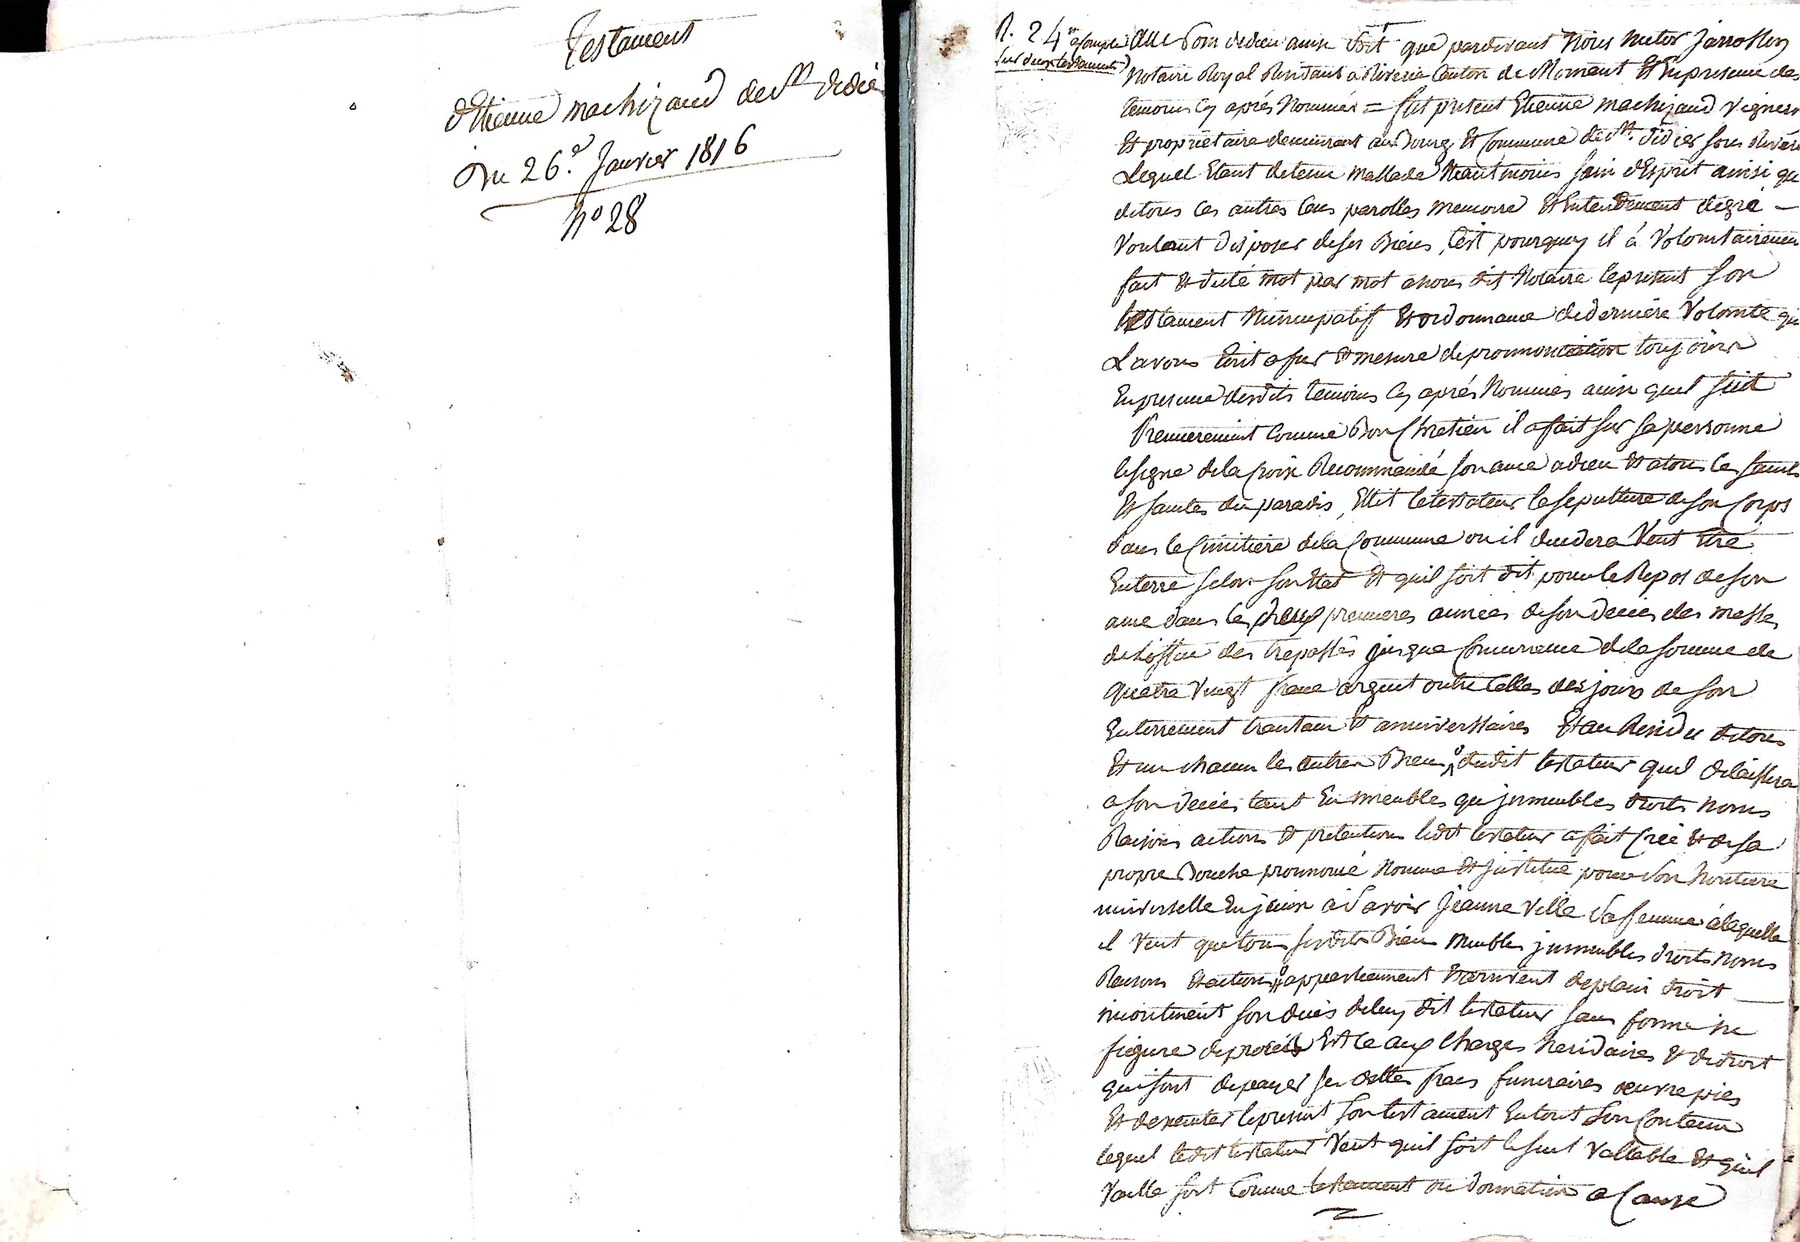 Testament
d'Etienne machizaud de St didié
Du 26e. Janvier 1816
No 28
N. 24
au Nom de dieu ainsi soit que pardevant Nous
Notaire Royal Residant a Riverie Canton de Mornant Et En presence des
temoins Cy aprés Nommés = fut present Etienne machizaud vigneron
Et proprietaire demeurant au Bourg Et Commune de St. didier sous Riverie
Lequel Etant detenu mallade Neantmoins sain d'Esprit ainsi que
de tous ces autres sens parolles memoire Et Entendement degré —
Voulant disposer de ses Biens, C'est pourquoy il á Volontairement
fait et dicté mot par mot a nous dit Notaire le present son
testament Nuncupatif Et ordonnance de derniére Volonté que
Lavons Ecrit a fur et mesure de pronnontiation toujours
En presence desdits temoins Cy aprés Nommés ainsi quil suit
Premierement Comme Bon Chretien il a fait sur sa personne
le signe de la Croix Recommandé son ame a dieu et a tous les saints
Et saintes du paradis, Ellit le testateur la sepulture de son Corps
dans le Cimitiére de la Commune ou il decedera Veut Etre
Enterré selon son Etat Et quil soit dit pour le Repos de son
ame dans les deux premieres années de son deces des messes
de L'office des trepassés jusqua Concurrence de la somme de
quatre Vingt franc argent outre Celles des jours de son
Enterrement trantain Et anniverssaires Et au Residu de tous
Et un chacun les autres Biens dudit testateur quil delaissera
a son deces tant En meubles que jmmeubles droits noms
Raisons actions Et pretentions ledit testateur a fait Créé Et de sa
propre Bouche pronnoncé Nommé Et jnstitué pour son heritiere
universelle En ainsi á savoir Jeanne Ville sa femme á laquelle
il Veut que tous sesdits Biens meubles jmmeubles droits Noms
Raisons Et actions appartiennent Et arrivent de plain droit —
incontinent son deces deluy dit testateur sans forme ne
figure de procés Et Ce aux Charges heridaires Et de droit
qui sont de payer ses dettes frais funeraires oeuvre pies
Et d'executer le present son testament En tout son Contenu
lequel ledit testateur Veut quil soit le seul Vallable Et quil
Vaille soit Comme testament ou donnation a Cause